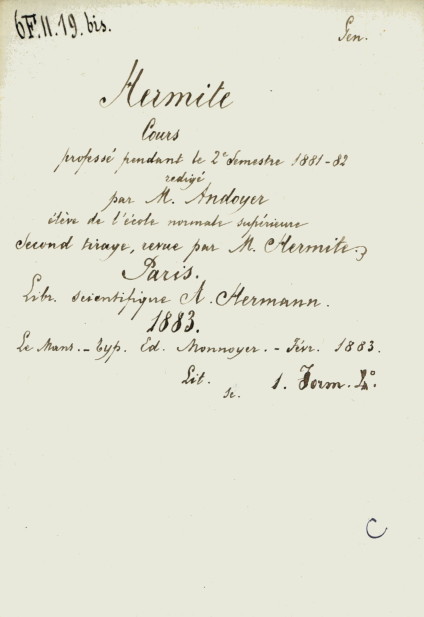 6F.11.19. bis.
Gen.
Hermite
Cours
professé pendant le 2e Semestre 1881-82
redigé
par M. Andoyer
élève de l'école normale supérieure
Second tirage, revue par M. Hermite.
Paris.
Libr. scientifique A. Hermann.
1883.
Le Mans. - Typ. Ed. Monnoyer. - Févr. 1883.
Lit. 1. Form. 4o.
sc.
C